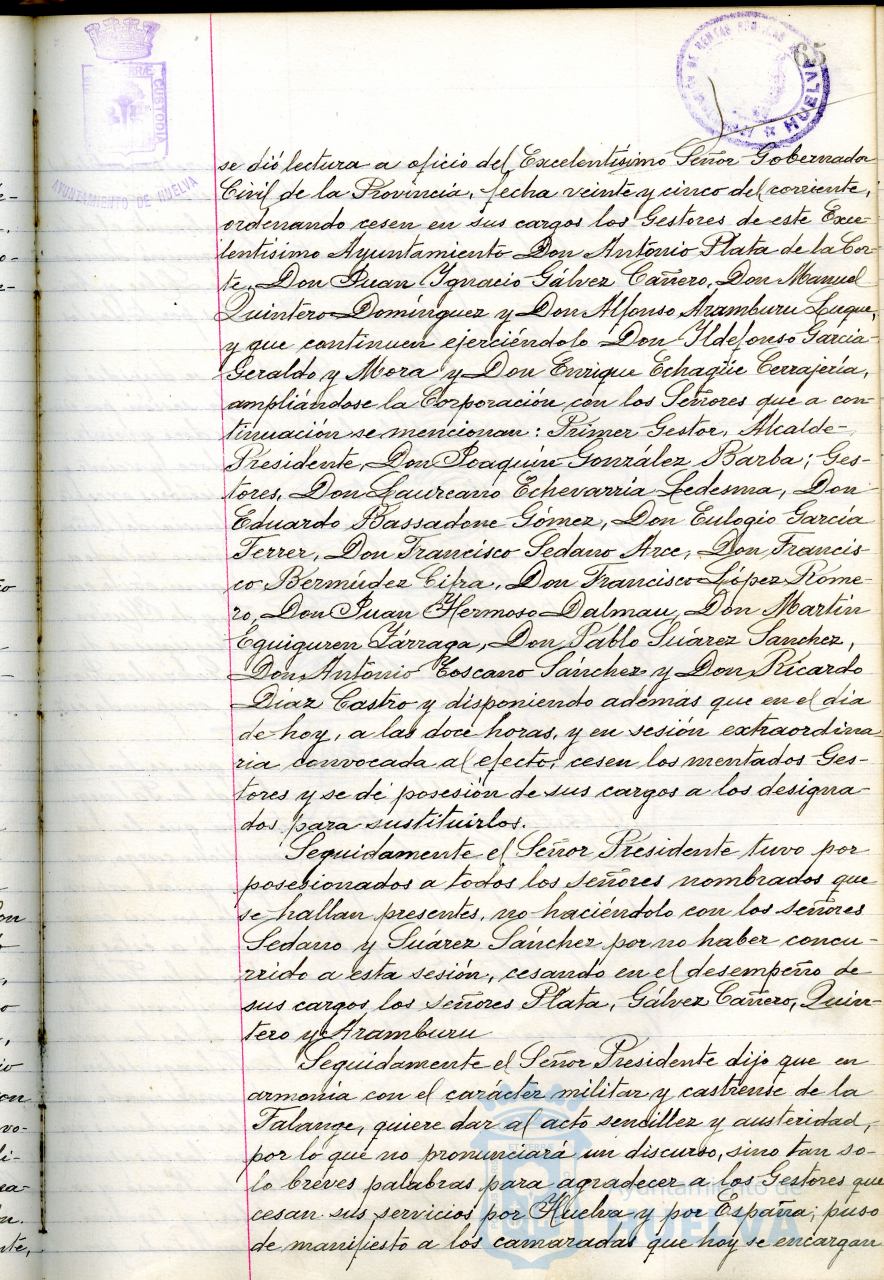 65
TERRÆ CUSTODIA
AYUNTAMIENTO DE HUELVA
HUELVA
se dió lectura a oficio del Excelentísimo Señor Gobernador
Civil de la Provincia, fecha veinte y cinco del corriente,
ordenando cesen en sus cargos los Gestores de este Exce-
lentísimo Ayuntamiento Don Antonio Plata de la Cor-
te, Don Juan Ygnacio Gálvez Cañero, Don Manuel
Quintero Domínguez y Don Alfonso Aramburu Luque,
y que continuen ejerciéndolo Don Ildefonso García
Geraldo y Mora y Don Enrique Echagüe Cerrajería,
ampliándose la Corporación con los Señores que a con-
tinuación se mencionan: Primer Gestor, Alcalde-
Presidente, Don Joaquín González Barba; Ges-
tores, Don Laureano Echevarría Ledesma, Don
Eduardo Bassadone Gómez, Don Eulogio García
Ferrer, Don Francisco Sedano Arce, Don Francis-
co Bermúdez Cifra, Don Francisco López Rome-
ro, Don Juan Hermoso Dalmau, Don Martín
Eguiguren Yárraga, Don Pablo Suárez Sanchez,
Don Antonio Toscano Sánchez y Don Ricardo
Díaz Castro y disponiendo además que en el día
de hoy, a las doce horas, y en sesión extraordina
ria convocada al efecto, cesen los mentados Ges-
tores y se dé posesión de sus cargos a los designa-
dos para sustituirlos.
Seguidamente el Señor Presidente tuvo por
posesionados a todos los señores nombrados que
se hallan presentes, no haciéndolo con los señores
Sedano y Suárez Sánchez por no haber concu-
rrido a esta sesión, cesando en el desempeño de
sus cargos los señores Plata, Gálvez Cañero, Quin-
tero y Aramburu
Seguidamente el Señor Presidente dijo que en
armonía con el carácter militar y castrense de la
Falange, quiere dar al acto sencillez y austeridad,
por lo que no pronunciará un discurso, sino tan so-
lo breves palabras para agradecer a los Gestores que
cesan sus servicios por Huelva y por España; puso
de manifiesto a los camaradas que hoy se encargan
Ayuntamiento de
HUELVA